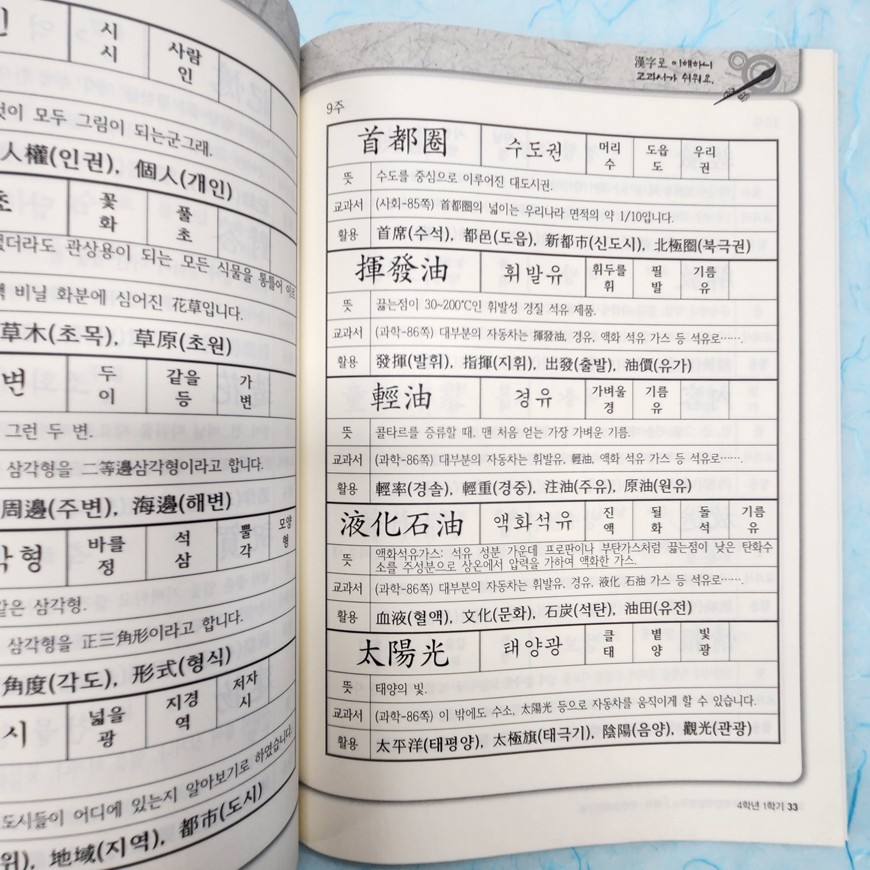 인
시
시
사람
인
것이 모두 그림이 되는군그래.
人權(인권), 個人(개인)
초
꽃
화
풀
초
없더라도 관상용이 되는 모든 식물을 통틀어 이르
비닐 화분에 심어진 花草입니다.
草木(초목), 草原(초원)
변
두
이
같을
등
가
변
그런 두 변.
삼각형을 二等邊삼각형이라고 합니다.
周邊(주변), 海邊(해변)
각형
바를
정
석
삼
뿔
각
모양
형
같은 삼각형.
삼각형을 正三角形이라고 합니다.
角度(각도), 形式(형식)
시
넓을
광
지경
역
저자
시
도시들이 어디에 있는지 알아보기로 하였습니다.
위), 地域(지역), 都市(도시)
漢字로 이해하니
교과서가 쉬워요.
9주
首都圈 수도권 머리 수 도읍 도 우리 권
뜻 수도를 중심으로 이루어진 대도시권.
교과서 (사회-85쪽) 首都圈의 넓이는 우리나라 면적의 약 1/10입니다.
활용 首席(수석), 都邑(도읍), 新都市(신도시), 北極圈(북극권)
揮發油 휘발유 휘두를 휘 필 발 기름 유
뜻 끓는점이 30~200℃인 휘발성 경질 석유 제품.
교과서 (과학-86쪽) 대부분의 자동차는 揮發油, 경유, 액화 석유 가스 등 석유로……
활용 發揮(발휘), 指揮(지휘), 出發(출발), 油價(유가)
輕油 경유 가벼울 경 기름 유
뜻 콜타르를 증류할 때, 맨 처음 얻는 가장 가벼운 기름.
교과서 (과학-86쪽) 대부분의 자동차는 휘발유, 輕油, 액화 석유 가스 등 석유로……
활용 輕率(경솔), 輕重(경중), 注油(주유), 原油(원유)
液化石油 액화석유 진 액 될 화 돌 석 기름 유
뜻 액화석유가스: 석유 성분 가운데 프로판이나 부탄가스처럼 끓는점이 낮은 탄화수
소를 주성분으로 상온에서 압력을 가하여 액화한 가스.
교과서 (과학-86쪽) 대부분의 자동차는 휘발유, 경유, 液化 石油 가스 등 석유로……
활용 血液(혈액), 文化(문화), 石炭(석탄), 油田(유전)
太陽光 태양광 클 태 볕 양 빛 광
뜻 태양의 빛.
교과서 (과학-86쪽) 이 밖에도 수소, 太陽光 등으로 자동차를 움직이게 할 수 있습니다.
활용 太平洋(태평양), 太極旗(태극기), 陰陽(음양), 觀光(관광)
4학년 1학기 33